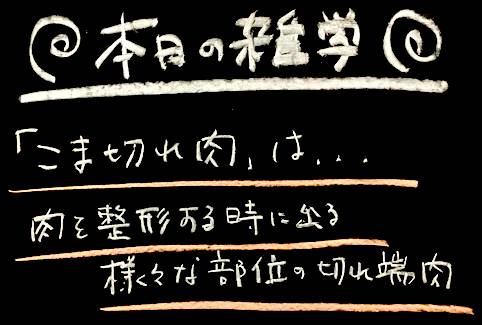 本日の雑学
「こま切れ肉」は...
肉を整形する時に出る
様々な部位の切れ端肉